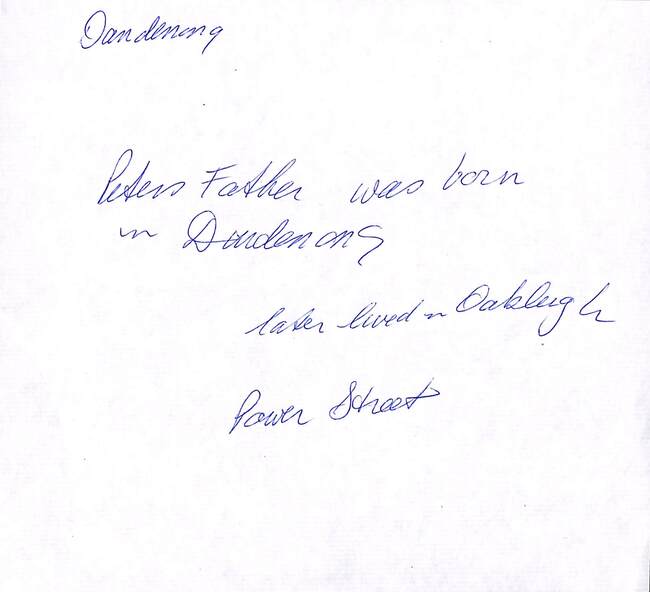 Dandenong
Peters Father was born
in Dandenong
later lived in Oakleigh
Power Street